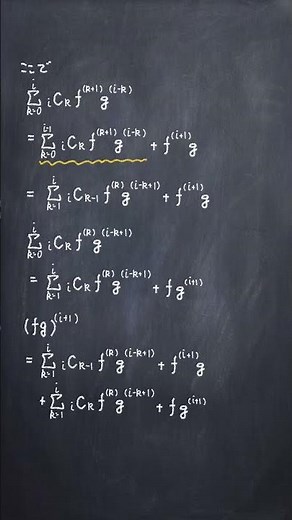 ここで
∑_{k=0}^{i} ᵢC_k f^{(k+1)} g^{(i-k)}
= ∑_{k=0}^{i-1} ᵢC_k f^{(k+1)} g^{(i-k)} + f^{(i+1)} g
= ∑_{k=1}^{i} ᵢC_{k-1} f^{(k)} g^{(i-k+1)} + f^{(i+1)} g
∑_{k=0}^{i} ᵢC_k f^{(k)} g^{(i-k+1)}
= ∑_{k=1}^{i} ᵢC_k f^{(k)} g^{(i-k+1)} + f g^{(i+1)}
(fg)^{(i+1)}
= ∑_{k=1}^{i} ᵢC_{k-1} f^{(k)} g^{(i-k+1)} + f^{(i+1)} g
+ ∑_{k=1}^{i} ᵢC_k f^{(k)} g^{(i-k+1)} + f g^{(i+1)}